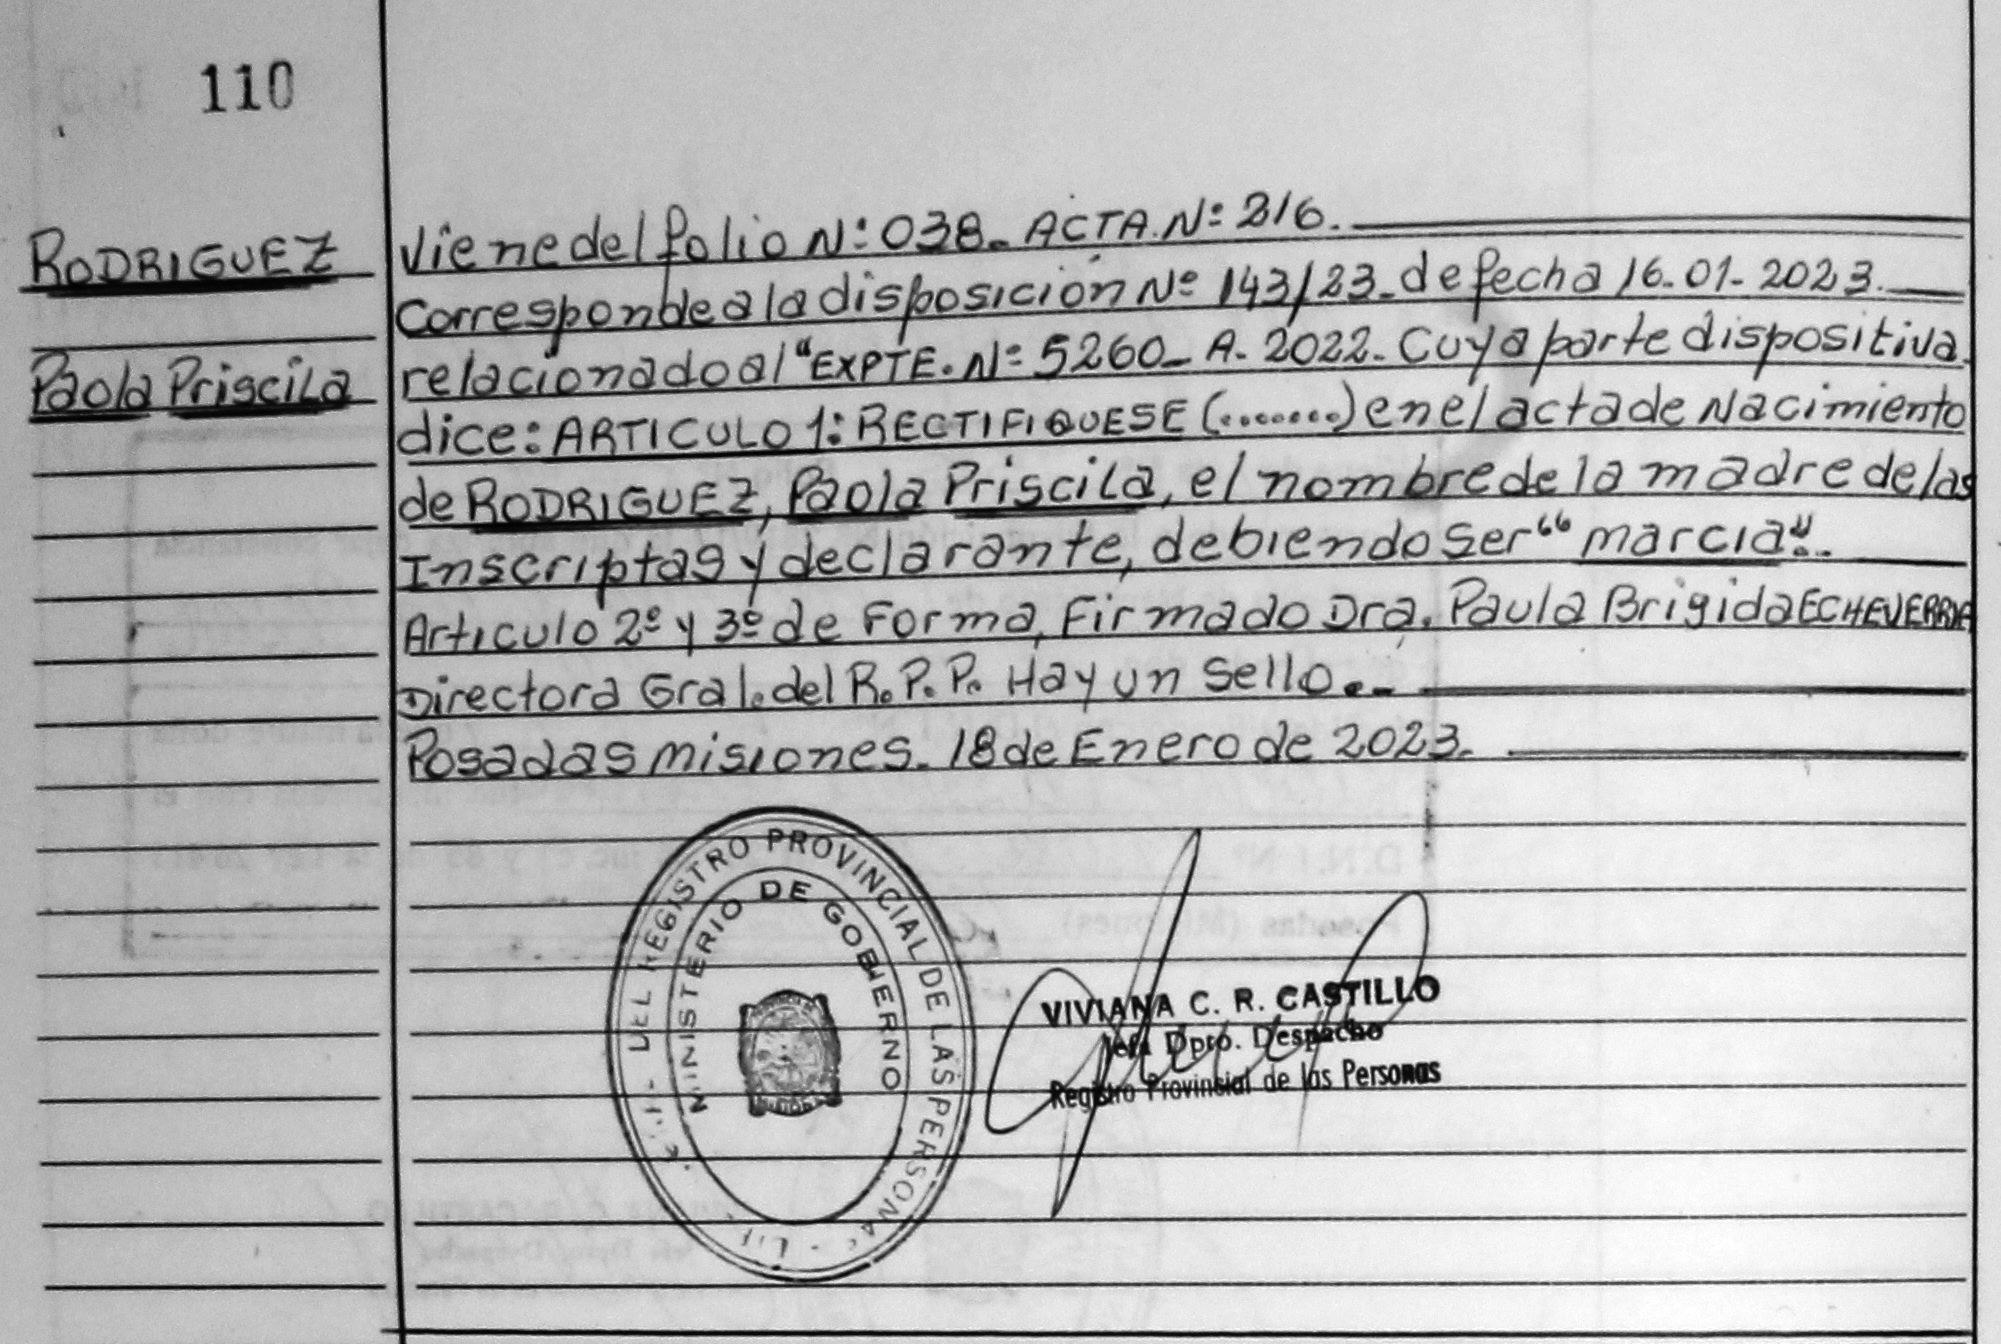 110
RODRIGUEZ
Paola Priscila
Viene del folio N: 038. ACTA. Nº 216.
Corresponde a la disposición Nº 143/23. de fecha 16.01-2023.
relacionado al "EXPTE. Nº 5260_ A. 2022. Cuya parte dispositiva.
dice: ARTICULO 1: RECTIFIQUESE (.......) en el acta de Nacimiento
de RODRIGUEZ, Paola Priscila, el nombre de la madre de las
Inscriptas y declarante, debiendo ser "marcia"..
Articulo 2º y 3º de Forma, Firmado Dra. Paula Brigida ECHEVERRIA
Directora Gral. del R.P.P. Hay un sello..-
Posadas misiones. 18 de Enero de 2023.
DEL REGISTRO PROVINCIAL DE LAS PERSONAS
MINISTERIO DE GOBIERNO
VIVIANA C. R. CASTILLO
Jefa Dpto. Despacho
Registro Provincial de las Personas